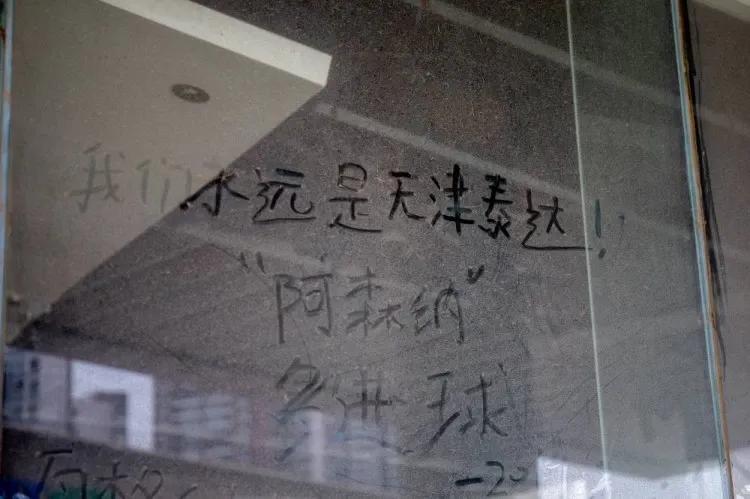 我们永远是天津泰达!
"阿森纳"
多进球
-20